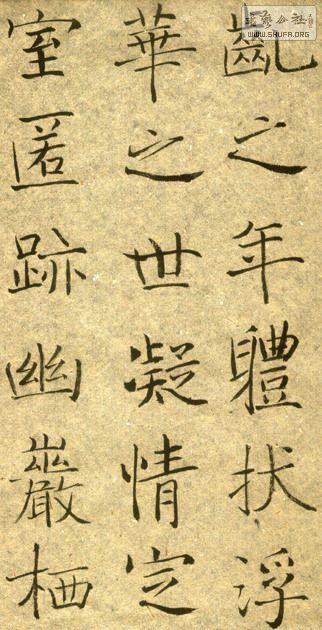 齓之年軆拔浮
華之世凝情定
室匿跡幽巖栖
书艺公社
WWW.SHUFA.ORG